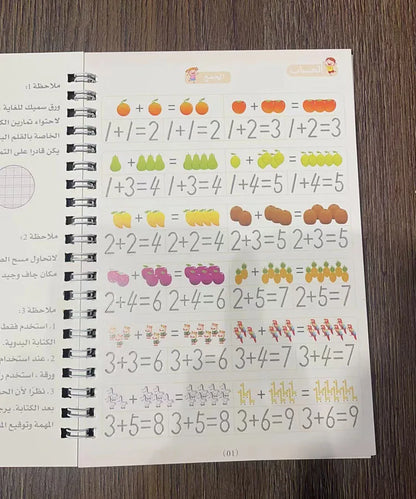 ملاحظة 1:
ورق سميك للغاية
لاحتواء تمارين الك
الخاصة بالقلم الب
يكن قادرا على التم
ملاحظة 2:
لاتحاول مسح الص
مكان جاف وجيد
ملاحظة 3:
1. استخدم فقط
الكتابة اليدوية.
2. عند استخدام
ورقة ، استخدم ر
3. نظرا لأن الحـ
بعد الكتابة، يرج
المهمة وتوقيع الم
الحساب
الجمع
+ = + =
1+1=2 1+1=2 1+2=3 1+2=3
+ = + =
1+3=4 1+3=4 1+4=5 1+4=5
+ = + =
2+2=4 2+2=4 2+3=5 2+3=5
+ = + =
2+4=6 2+4=6 2+5=7 2+5=7
+ = + =
3+3=6 3+3=6 3+4=7 3+4=7
+ = + =
3+5=8 3+5=8 3+6=9 3+6=9
(01)